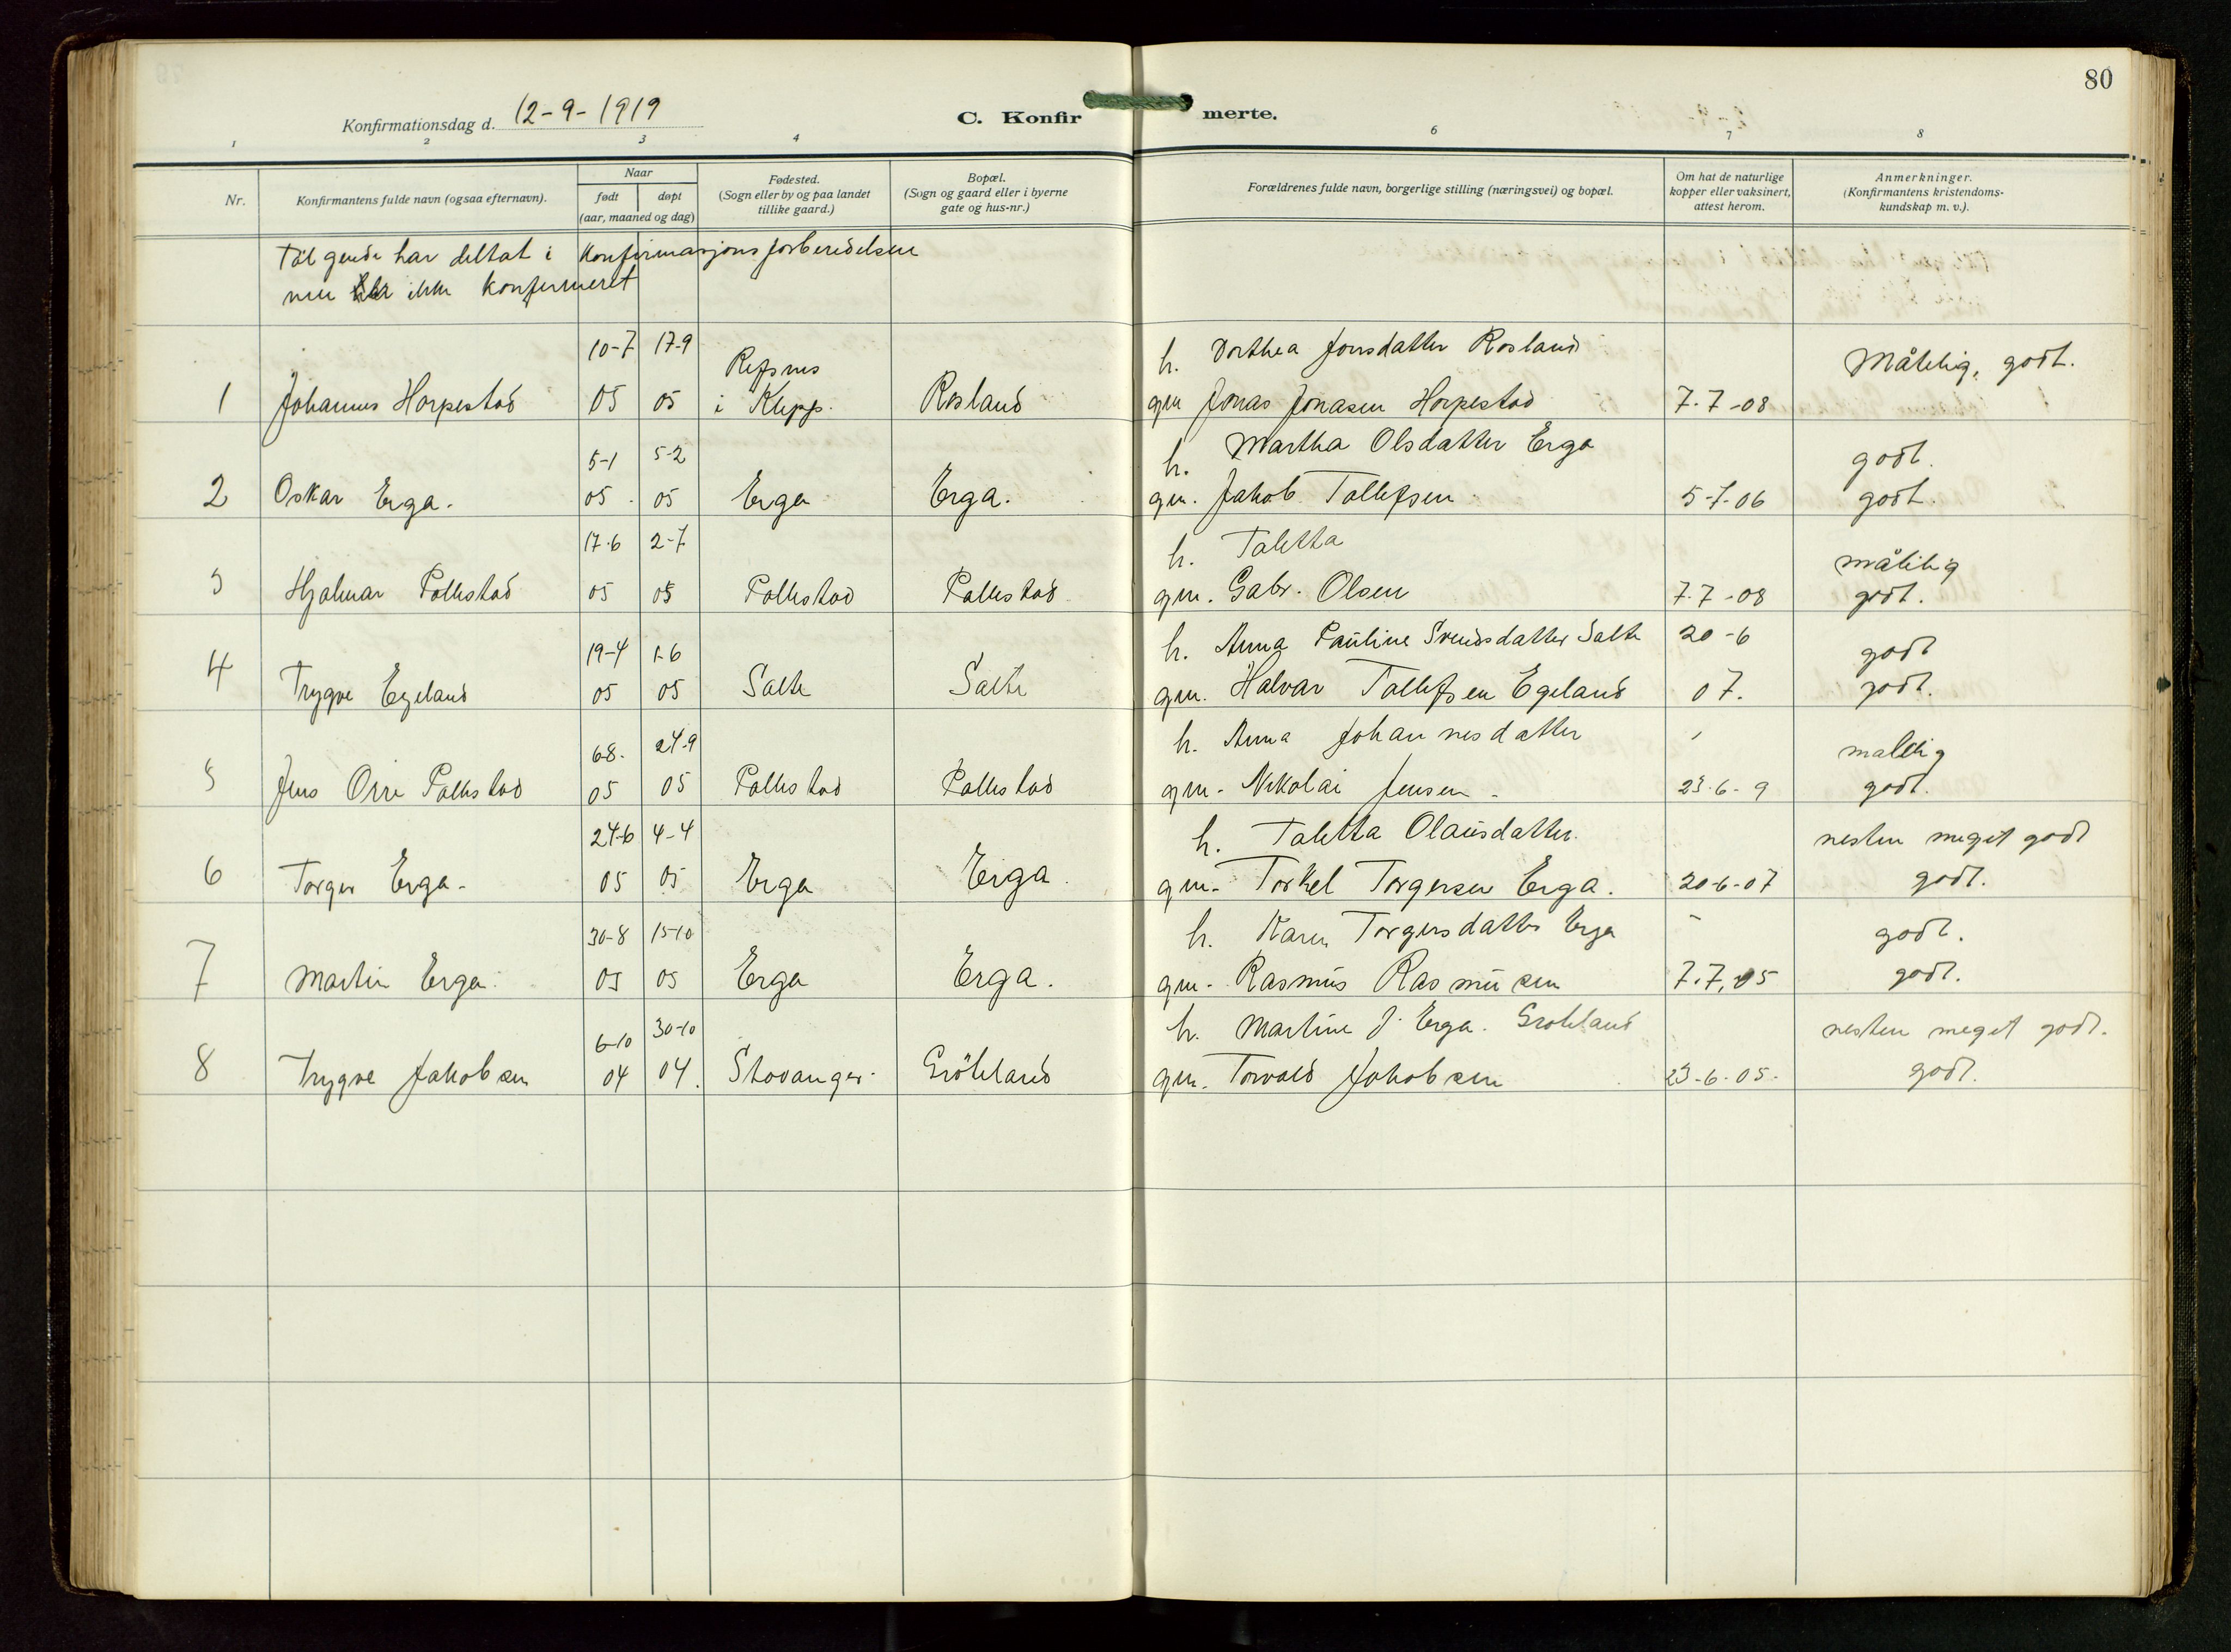 80
Konfirmationsdag d. 12-9-1919
C. Konfirmerte.
1 2 3 4 6 7 8
Nr.
Konfirmantens fulde navn (ogsaa efternavn).
Naar
født døpt
(aar, maaned og dag)
Fødested.
(Sogn eller by og paa landet
tillike gaard.)
Bopæl.
(Sogn og gaard eller i byerne
gate og hus-nr.)
Forældrenes fulde navn, borgerlige stilling (næringsvei) og bopæl.
Om hat de naturlige
kopper eller vaksinert,
attest herom.
Anmerkninger.
(Konfirmantens kristendoms-
kundskap m. v.).
Følgende har deltat i Konfirmasjonsforberedelsen
men ikke konfirmeret
10-7 17-9 Refsnes h. Dorthea Jonsdatter Rosland Måtelig, godt.
1 Johannes Horpestad 05 05 i Klepp. Rosland gm Jonas Jonasen Horpestad 7-7-08
5-1 5-2 h. Martha Olsdatter Erga godt.
2 Oskar Erga. 05 05 Erga Erga. gm. Jakob Tollefsen 5-7-06 godt.
17-6 2-7 h. Taletta måtelig
3 Hjalmar Pollestad 05 05 Pollestad Pollestad gm. Gabr. Olsen 7-7-08 godt.
19-4 1-6 h. Anna Pauline Svendsdatter Salte 20-6 godt
4 Trygve Egeland 05 05 Salte Salte gm. Halvar Tollefsen Egeland 07. godt.
6-8. 24-9 h. Anna Johannesdatter matelig
5 Jens Orre Pollestad 05 05 Pollestad Pollestad gm. Nikolai Jensen 23-6-9 godt.
24-6 4-4 h. Taletta Olausdatter. nesten meget godt
6 Torger Erga. 05 05 Erga Erga. gm. Torkel Torgersen Erga. 20-6-07 godt.
30-8 15-10 h. Karen Torgersdatter Erga godt.
7 Martin Erga. 05 05 Erga Erga. gm. Rasmus Rasmussen 7.7.05 godt.
6-10 30-10 h. Martine J. Erga. nesten meget godt.
8 Trygve Jakobsen 04 04. Stavanger. gm. Torvald Jakobsen 23-6-05. godt.